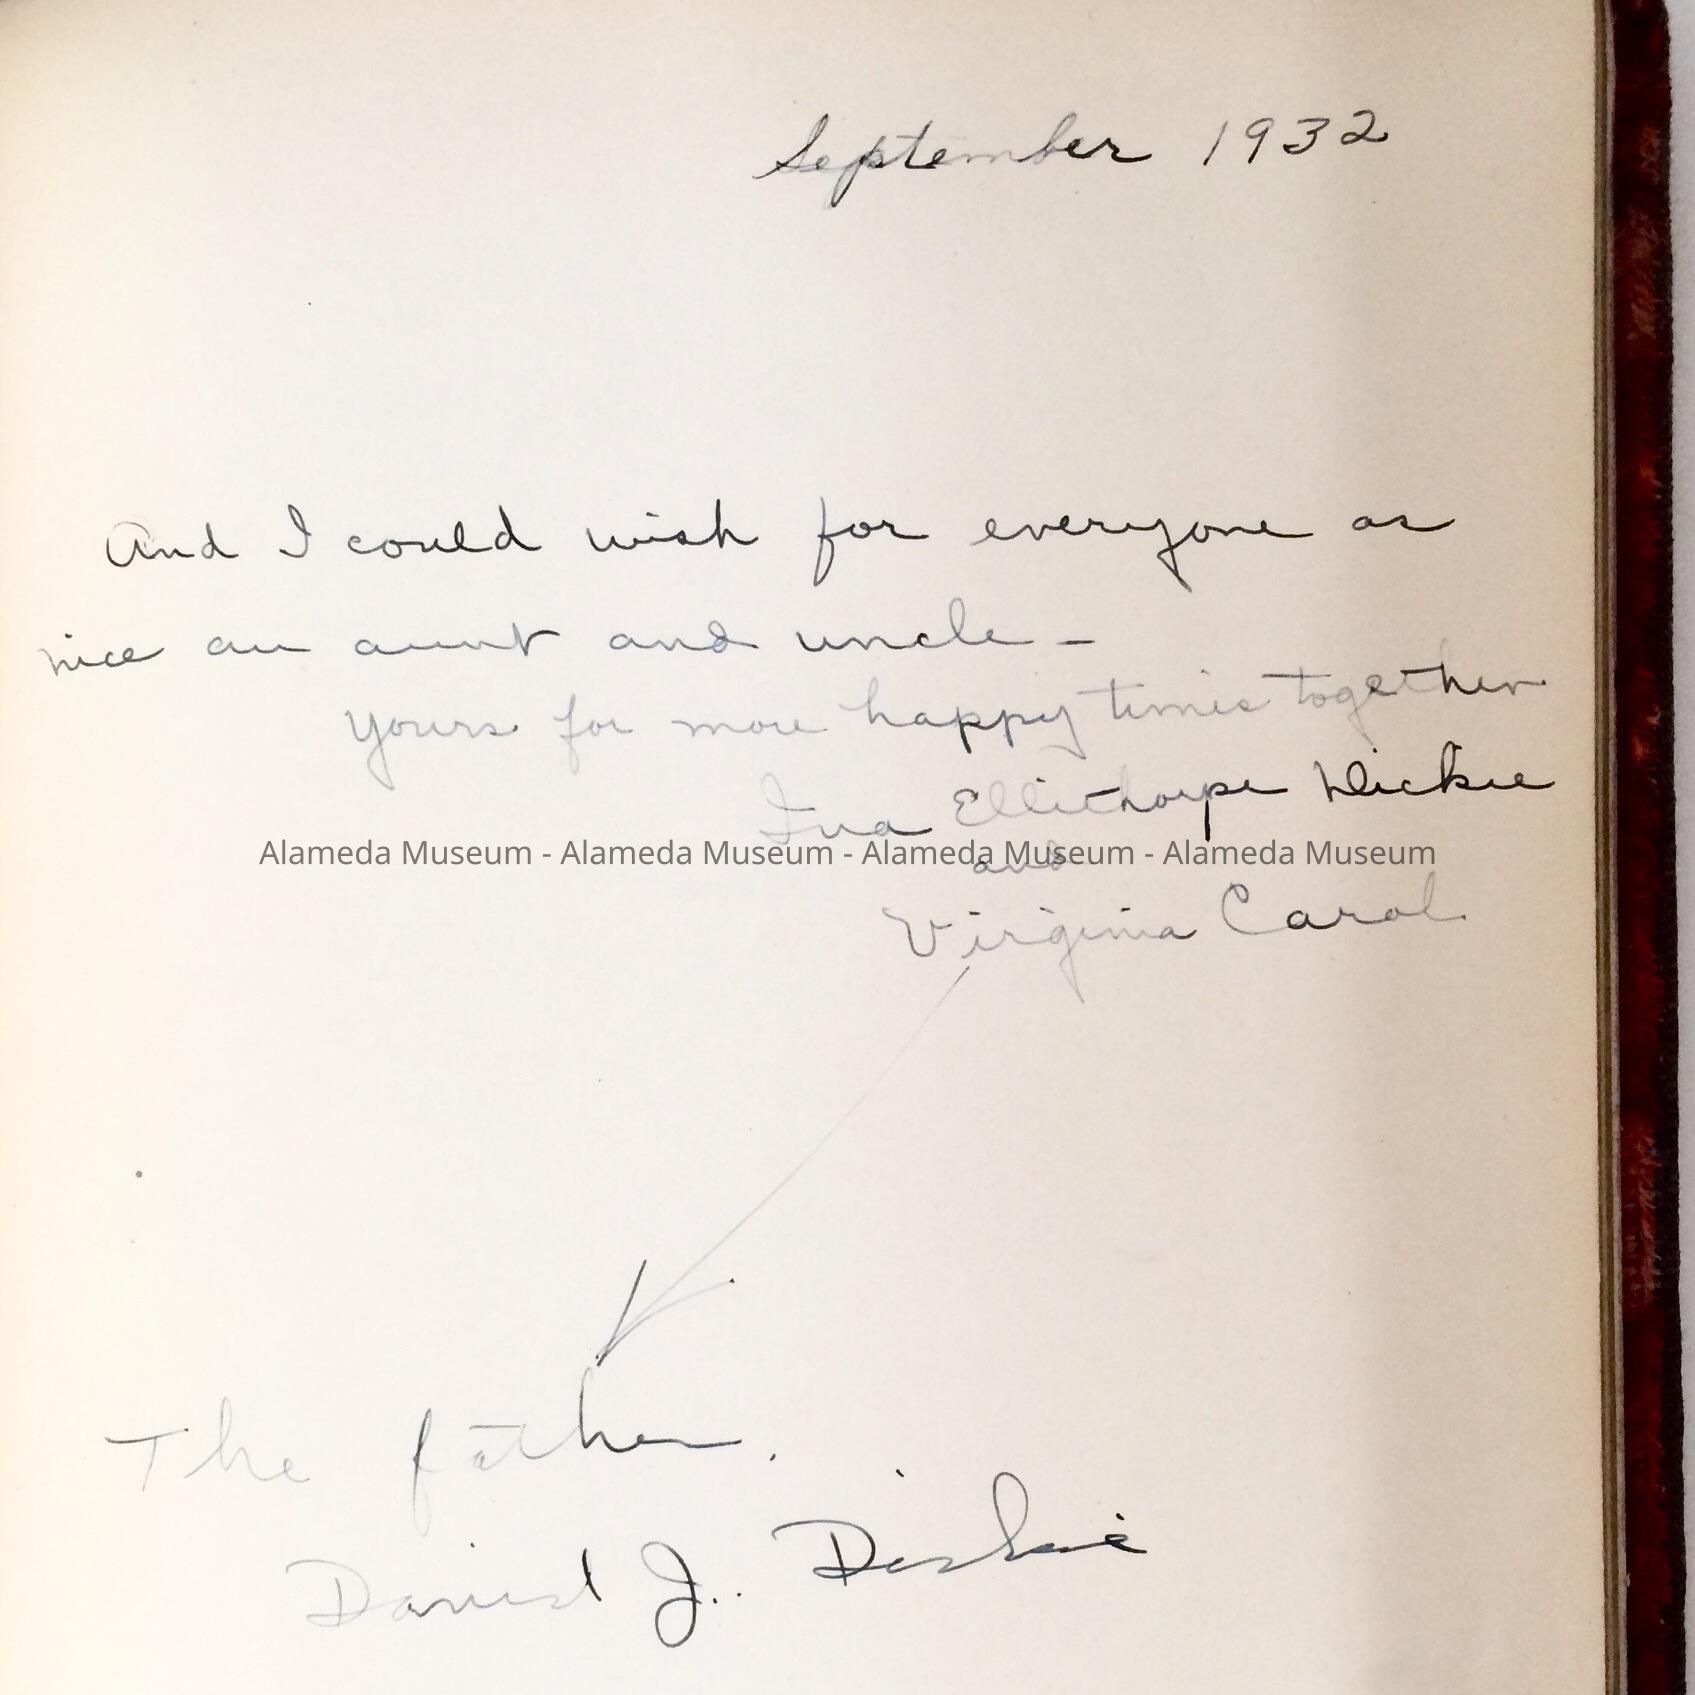 September 1932
And I could wish for everyone as
nice an aunt and uncle -
Yours for more happy times together
Iva Ellithorpe Dickie
Alameda Museum - Alameda Museum - Alameda Museum - Alameda Museum
and
Virginia Carol
The father.
Daniel J. Dickie